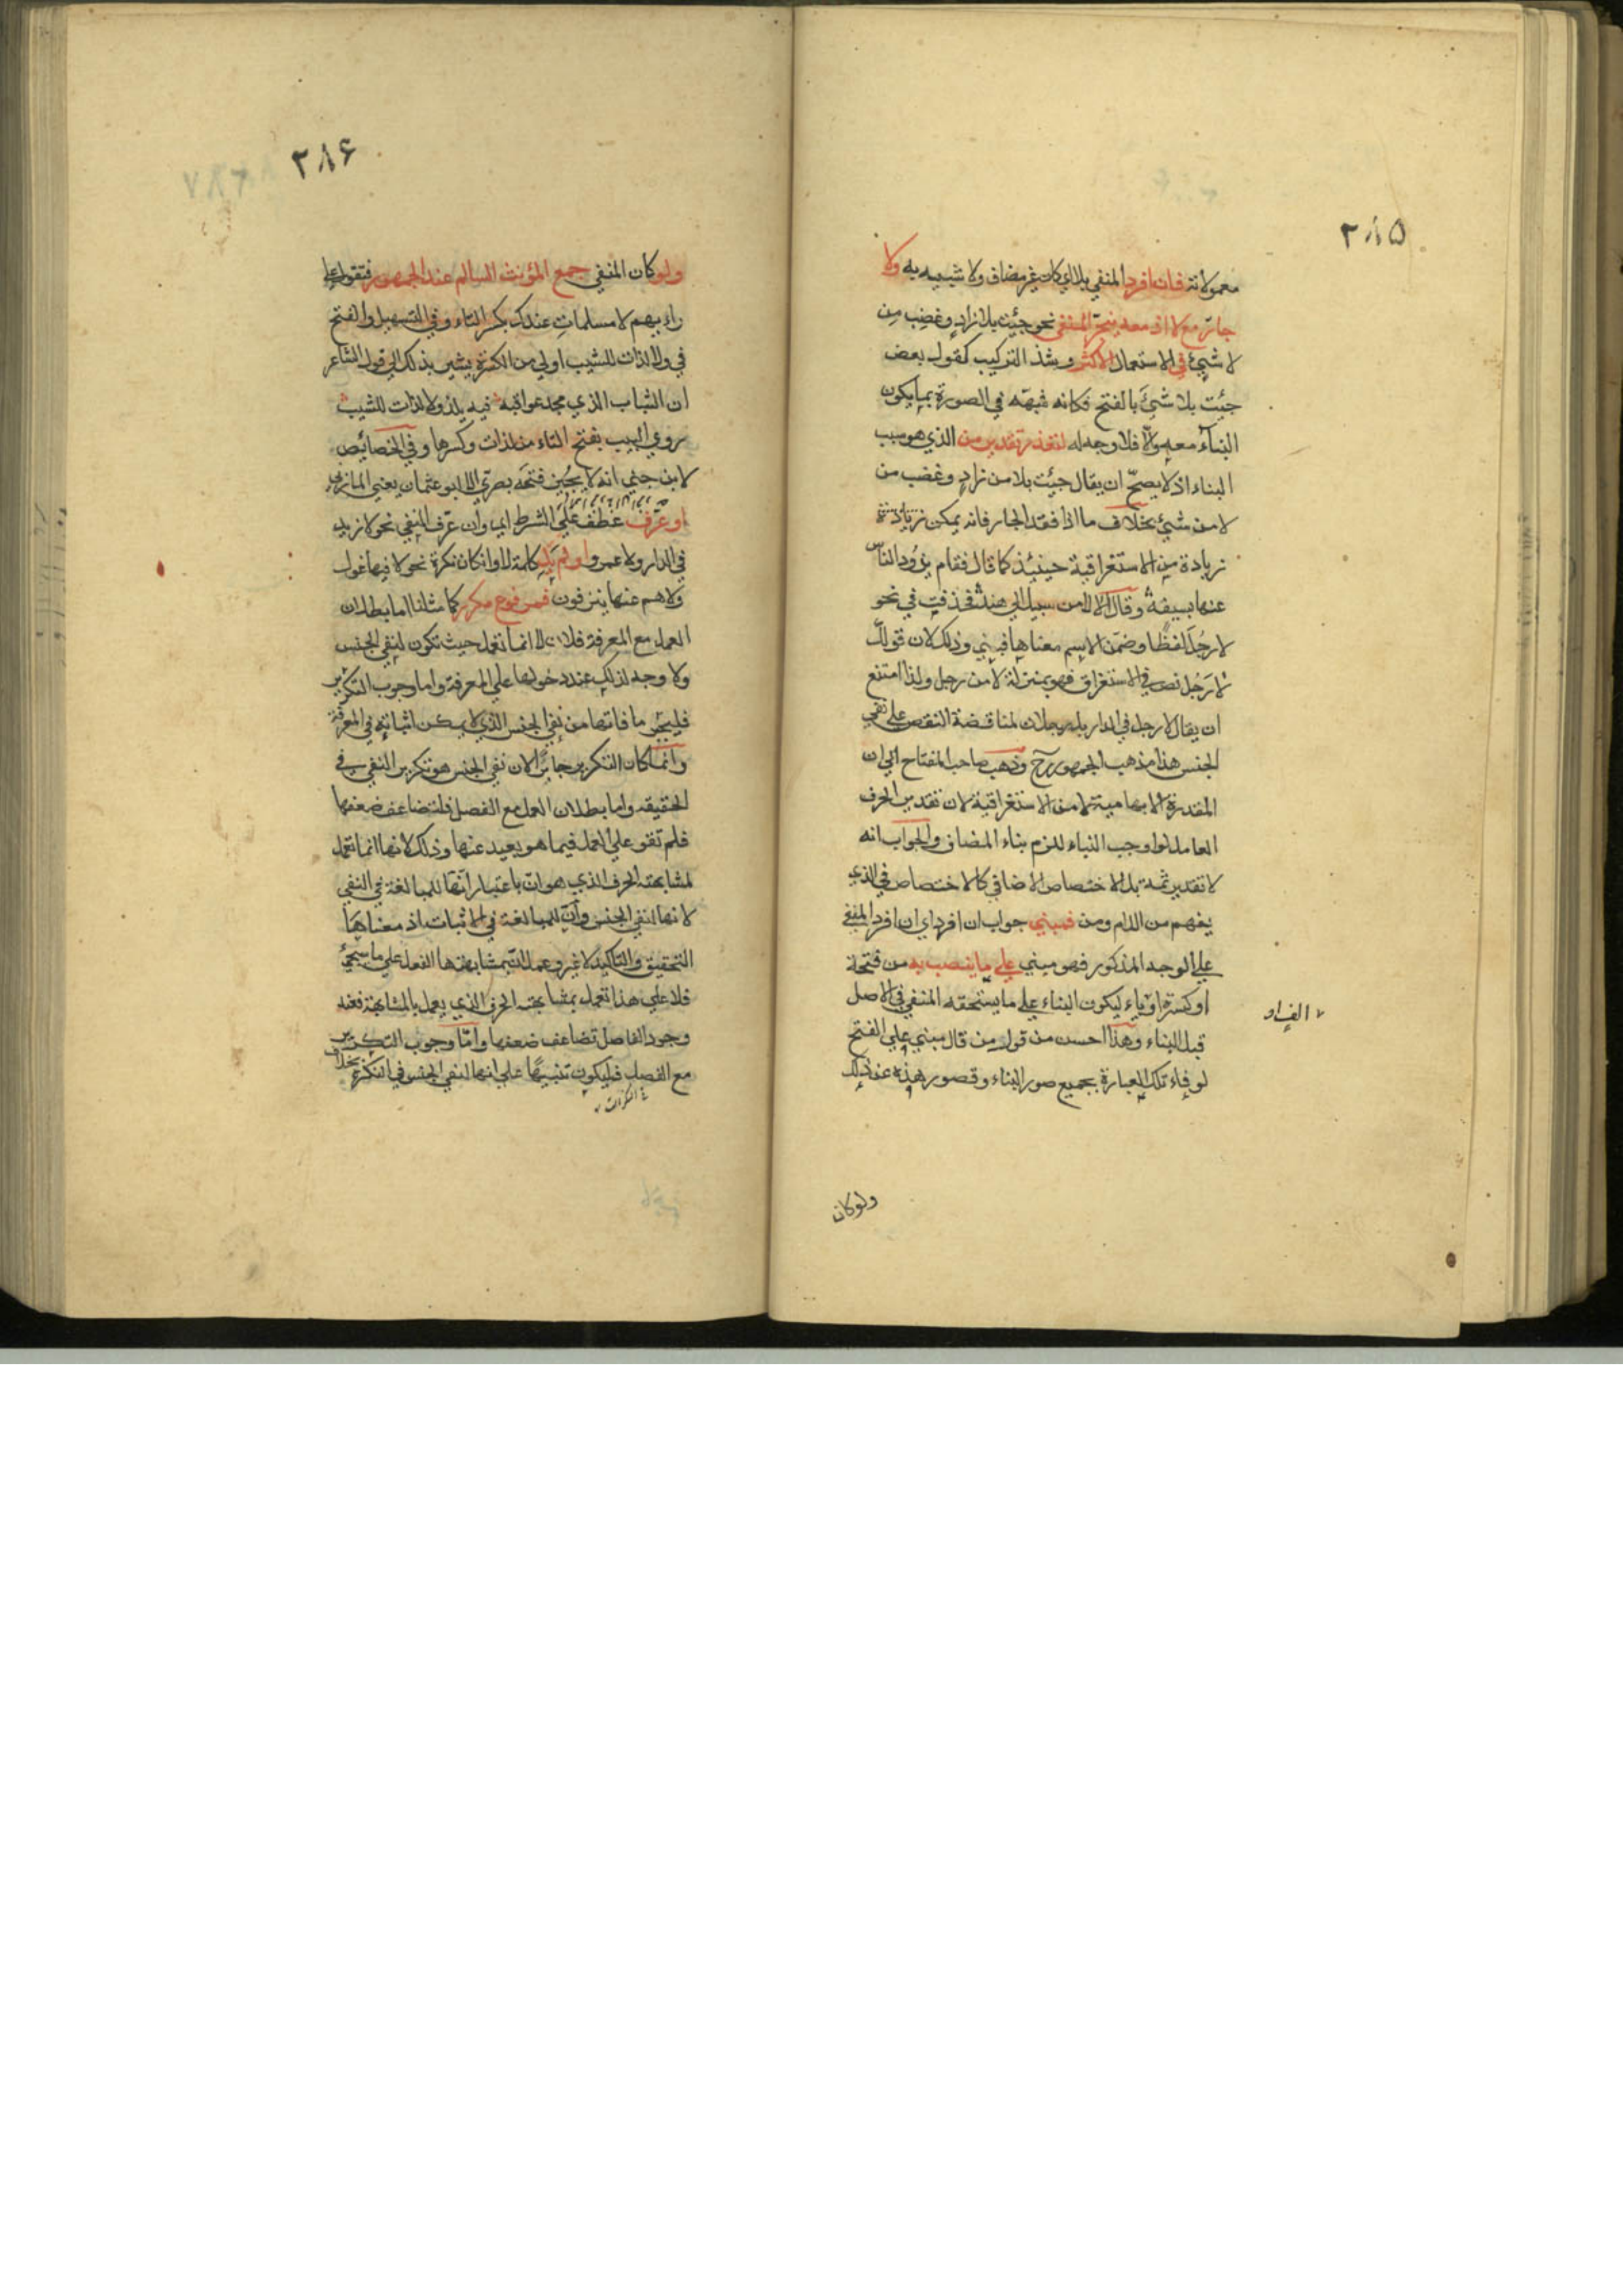 ٣٨٥
معمولاته فان افرد المنفي بلا اي كان غير مضاف ولا شبيه به ولا
جار مع لا اذ معه ينجر المنفي نحو جئت بلا زاد وغضب من
لا شيئ في الاستعمال الاكثر ويشذ التركيب كقول بعض
جئت بلا شيئ بالفتح فكانه شبهه في الصورة بما يكون
البناء معمولا فلا وجه له لتعذر تقدير من الذي هو سبب
البناء اذ لا يصح ان يقال جيئت بلا من زاد وغضب من
لا من شيئ بخلاف ما اذا فقد الجار فانه يمكن زيادته
زيادة من الاستغراقية حينئذ كما قال فقام يذود الناس
عنها بسيفه وقال الا لا من سبيل الي هند فحذفت في نحو
لا رجل لفظا وضمن الاسم معناها فبني وذلك لان قولك
لا رجل نص في الاستغراق فهو بمنزلة لا من رجل ولذا امتنع
ان يقال لا رجل في الدار بل رجلان لمناقضة النقص علي نفي
الجنس هذا مذهب الجمهور رح وذهب صاحب المفتاح الي ان
المقدرة الابهامية لا من الاستغراقية لان تقدير الحرف
العامل لو اوجب البناء للزم بناء المضاف والجواب انه
لا تقدير ثمة بل الاختصاص الاضافي كالاختصاص في الذي
يفهم من اللام ومن فمبني جواب ان افرد اي ان افرد المنفي
علي الوجه المذكور فهو مبني علي ما ينصب به من فتحة
او كسرة او ياء ليكون البناء علي ما يستحقه المنفي في الاصل
قبل البناء وهذا احسن من قول من قال مبني علي الفتح
لوفاء تلك العبارة بجميع صور البناء وقصور هذه عن ذلك
ولو كان
٣٨۶
ولو كان المنفي جمع المؤنث السالم عند الجمهور فتقول علي
رايهم لا مسلمات عندك بكسر التاء وفي التسهيل والفتح
في ولا لذات للشيب اولي من الكسرة يشير بذلك الي قول الشاعر
ان الشباب الذي مجد عواقبه فيه يلذ ولا لذات للشيب
روي البيت بفتح التاء من لذات وكسرها وفي الخصائص
لابن جني انه لا يجيز فتحه بصري الا ابو عثمان يعني المازني
او عرف عطف علي الشرط اي وان عرف المنفي نحو لا زيد
في الدار ولا عمرو او لم يل كلمة لا وان كان نكرة نحو لا فيها غول
ولا هم عنها ينزفون فمرفوع مكرر كما مثلنا اما بطلان
العمل مع المعرفة فلان لا انما تعمل حيث تكون لنفي الجنس
ولا وجه لذلك عند دخولها علي المعرفة واما وجوب التكرير
فليجبر ما فاتها من نفي الجنس الذي لا يمكن اثباته في المعرفة
وانما كان التكرير جابرا لان نفي الجنس هو تكرير النفي في
الحقيقة واما بطلان العمل مع الفصل فلتضاعف ضعفها
فلم تقو علي العمل فيما هو بعيد عنها وذلك لانها انما تعمل
لمشابهته الحرف الذي هو ان باعتبار انها للمبالغة في النفي
لانها لنفي الجنس وان للمبالغة في الاثبات اذ معناها
التحقيق والتاكيد لا غير وعمل ان بمشابهتها الفعل علي ما سيجيئ
فلا علي هذا تعمل بمشابهته الحرف الذي يعمل بالمشابهة فعند
وجود الفاصل تضاعف ضعفها واما وجوب التكرير
مع الفصل فليكون تنبيها علي انها لنفي الجنس في النكرة بخلاف
النكرات